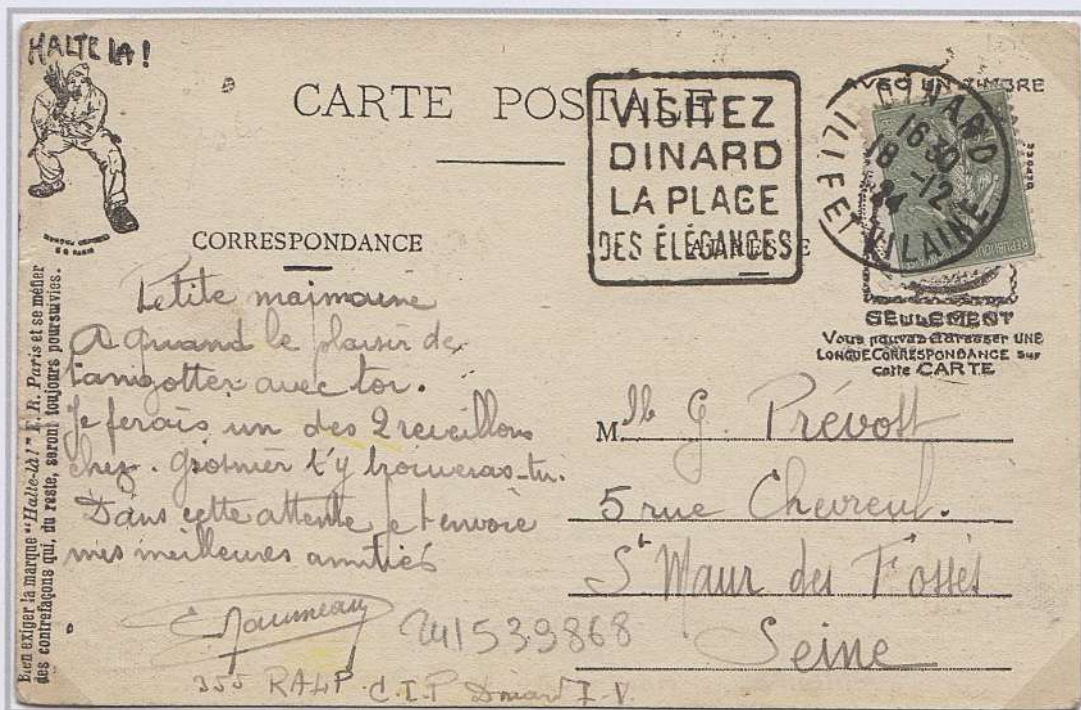 HALTE LA !
CARTE POSTALE
VISITEZ
DINARD
LA PLAGE
DES ÉLÉGANCES
AVEC UN TIMBRE
DINARD
16 30
18 -12
ILLE ET VILAINE
CORRESPONDANCE
ADRESSE
SEULEMENT
Vous pouvez adresser UNE
LONGUE CORRESPONDANCE sur
cette CARTE
Bien exiger la marque "Halte-là !" E. R. Paris et se méfier
des contrefaçons qui, du reste, seront toujours poursuivies.
Petite
A quand le plaisir de
avec toi.
Je ferais un des 2 reveillons
chez. t'y trouveras-tu.
Dans cette attente je t'envoie
mes meilleures amitiés
355 RALP C.I.P Dinard I-V.
Mlle G. Prévost
5 rue Chevreul.
St Maur des Fossés
Seine